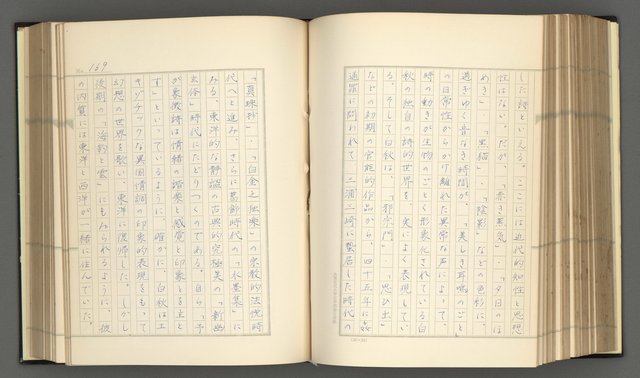 した詩といえる。ここには近代的知性と思想
性はない。だが、「赤き蒸気」、「夕日のほ
めき」、「黒猫」、「陰影」などの色彩に、
過ぎゆく音なき時間が、「美しき耳鳴のごと」
の日常性からかけ離れた異常な声によって、
時の動きが生物のごとく形象化されている白
秋の独自の詩的世界を、実によく表現してい
る。そして白秋は、「邪宗門」、「思ひ出」
などの初期の官能的作品から、四十五年に姦
通罪に問われて、三浦三崎に蟄居した時代の
No. 139
「真珠抄」、「白金之独楽」の宗教的法悦時
代へと進み、さらに葛飾時代の「水墨集」に
みる、東洋的な静謐の古典的究極美の「新幽
玄体」時代にたどりつくのである。自ら「予
が象徴詩は情緒の諧楽と感覚の印象とを主と
す」といっているように、確かに、白秋はエ
キゾチックな異国情調の印象的表現をもって
幻想の世界を歌い、東洋に復帰した。しかし
後期の「海豹と雲」にもみられるように、彼
の内質には東洋と西洋が一緒に住んでいた。